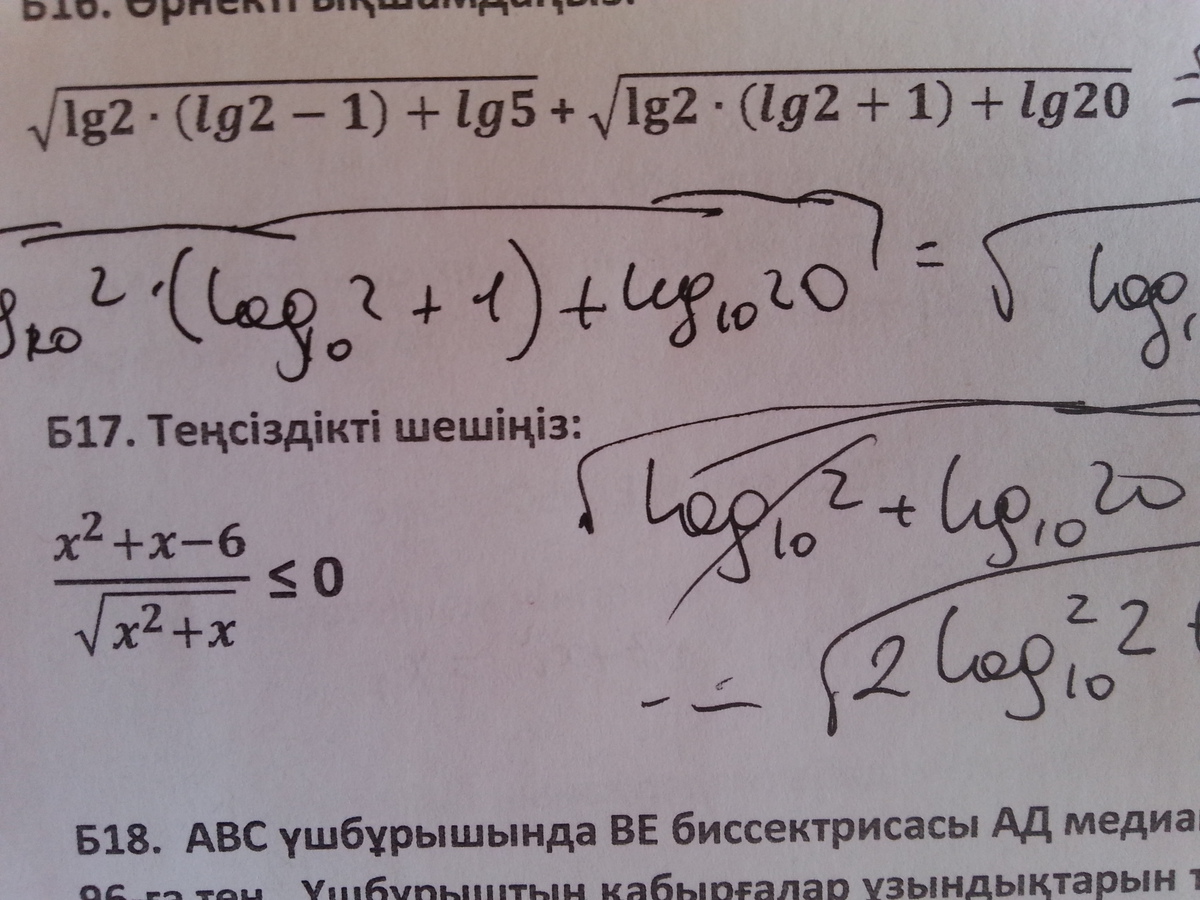 Б16. Өрнекті ықшамдаңыз:
√(lg2 · (lg2 − 1) + lg5) + √(lg2 · (lg2 + 1) + lg20) =
2 · (log₁₀ 2 + 1) + log₁₀ 20 = √ log
Б17. Теңсіздікті шешіңіз:
√ log₁₀ 2 + log₁₀ 20
x² + x − 6
√(x² + x) ≤ 0
√ 2 log²₁₀ 2 +
Б18. ABC үшбұрышында BE биссектрисасы АД медиа
96-ға тең. Үшбұрыштың қабырғалар ұзындықтарын т